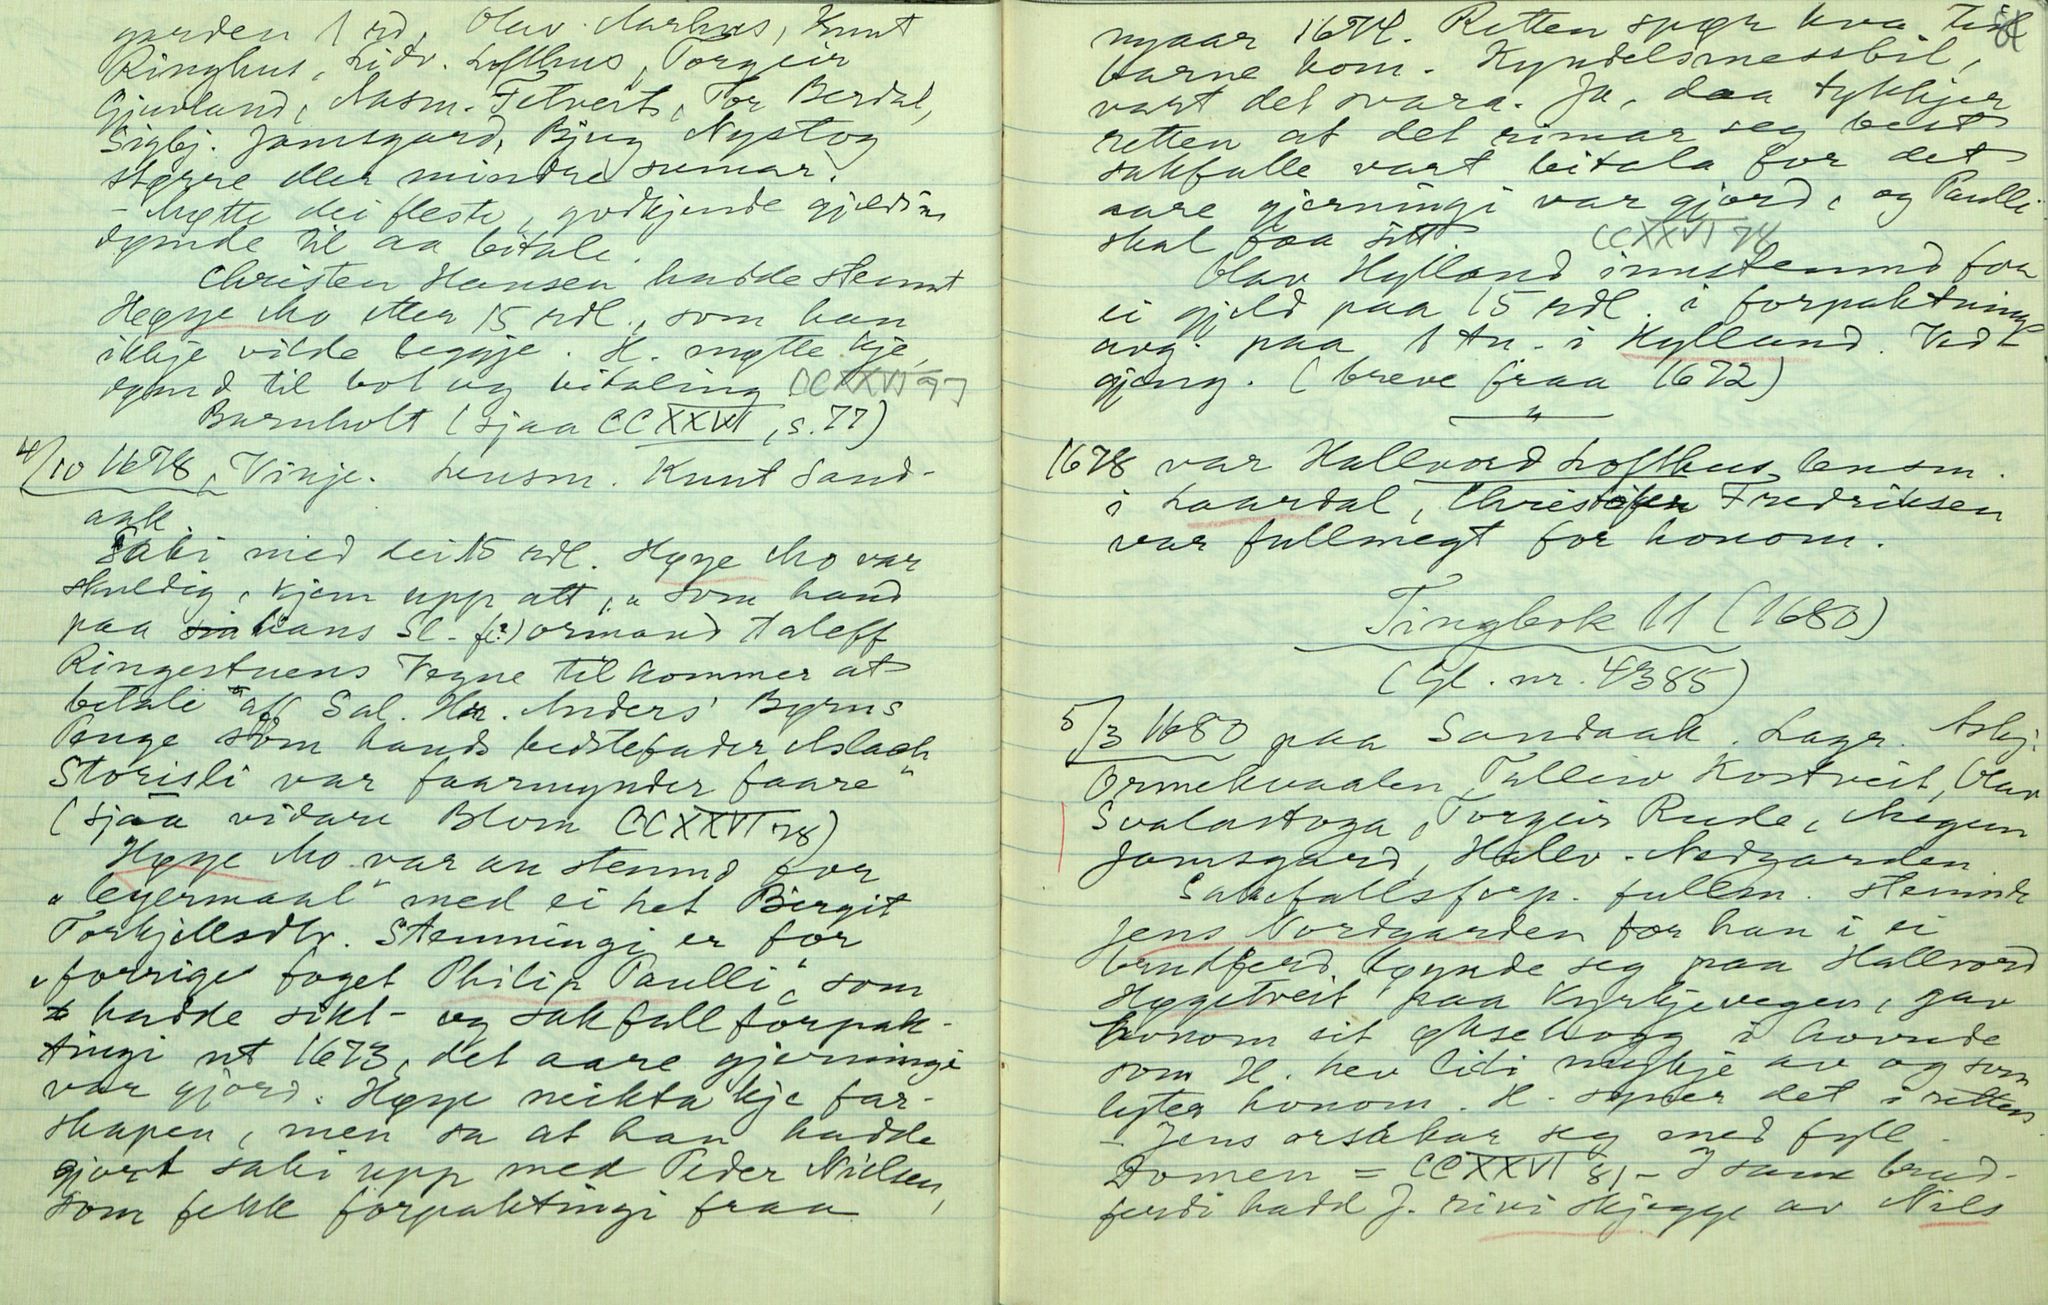 garden 1 rd, Olav Aarhus, Knut
Ringhus, Lidv. Lofthus, Torgeir
Gjuvland, Aasm. Fetveit, Tor Berdal,
Sigbj. Jamsgard, Bjug Nystog
større eller mindre sumar.
- Møtte dei fleste, godkjende gjeldi
dømde til aa bitale.
Christen Hansen hadde stemt
Høgje Mo etter 15 rdl., som han
ikkje vilde leggje. H. møtte kje,
dømd til bot og bitaling CCXXVI 77
Burnholt (sjaa CCXXVI, s. 77)
4/10 1678, Vinje. Lensm. Knut Sand-
aak.
Saki med dei 15 rdl. Høgje Mo var
skuldig, kjem upp att, "som hand
paa hans Sl. f(?)ormand Aaleff
Ringestuens Vegne tilkommer at
betale aff Sal. Hr. Anders Byrns
Penge som hands bedstefader Aslach
Storisli var faarmynder faare"
(sjaa vidare Blom CCXXVI 78)
Høgje Mo var an stemnd for
"leyermaal" med ei het Birgit
Torkjellsdtr. Stemningi er for
"forrige foget Philip Paulli", som
hadde sikt- og sakfallforpak-
tingi ut 1673, det aare gjerningi
var gjord. Høgje neikta kje far-
skapen, men sa at han hadde
gjort saki upp med Peder Nielsen,
som fekk forpaktingi fraa
nyaar 1674. Retten spør kva tid
barne kom. Kyndelsmessbil,
vart det svara. Ja, daa tykkjer
retten at det rimar seg best
sakfalle vart bitala for det
aare gjerningi var gjord, og Paulli
skal faa sitt. CCXXVI 78
Olav Hylland innstemnd for
ei gjeld paa 15 rdl. i forpaktnings
avg. paa 1 tn. i Hylland. Ved-
gjeng. (breve fraa 1672)
"
1678 var Hallvord Lofthus lensm.
i Laardal, Christofer Fredriksen
var fullmegt for honom.
Tingbok 11 (1680)
(Gl. nr. 4385)
5/3 1680 paa Sandaak. Lagr. Asbj.
Ormekvaalen, Talleiv Kostveit, Olav
Svalastoga, Torgeir Rude, Mogun
Jamsgard, Hallv. Nedgarden
Sakefallsforp. fullm. stemnde
Jens Nordgarden for han i ei
brudferd løynde seg paa Hallvord
Høgetveit paa Kyrkjevegen, gav
honom eit øksehogg i hovude
som H. hev lidi mykje av og som
lyter honom. H. syner det i retten
- Jens orsakar seg med fyll.
Domen = CCXXVI 81 - I same brud-
ferdi hadd J. rivi skjegge av Nils